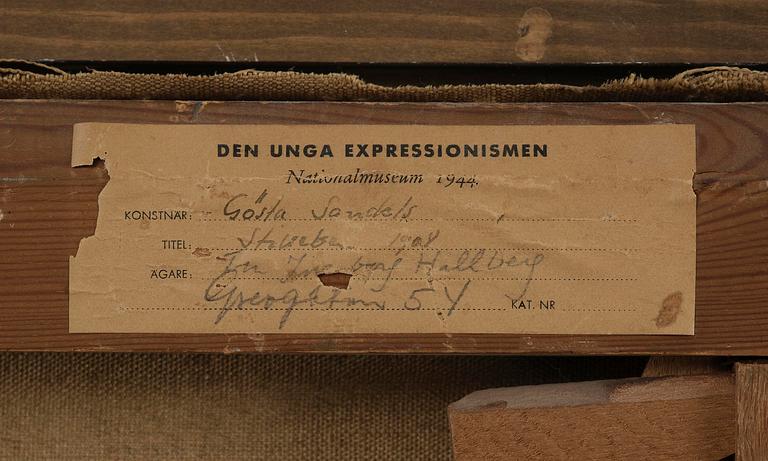 DEN UNGA EXPRESSIONISMEN
Nationalmuseum 1944.
KONSTNÄR: Gösta Sandels
TITEL: Stilleben 1908
ÄGARE: Fru Ingeborg Hallberg
54 KAT. NR